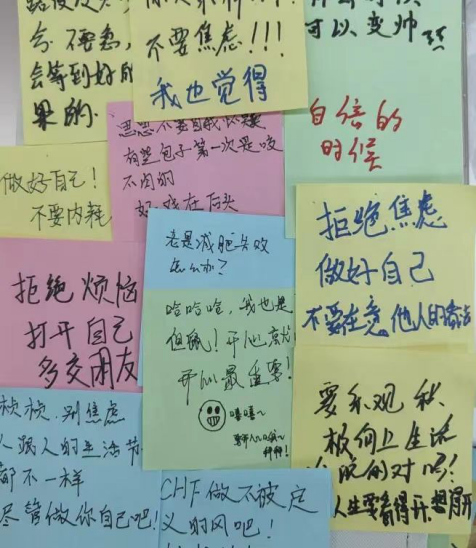 会 不要急,
会等到好的
果的.
不要焦虑!!!
我也觉得
可以变帅
自信的
时候
思思不要自我怀疑
有些包子第一次是咬
不肉的
好戏在后头
做好自己!
不要内耗
老是减肥失败
怎么办?
拒绝焦虑
做好自己
不要在意他人的看法
拒绝 烦恼
打开自己
多交朋友
哈哈哈, 我也是
但是! 开心就
开心最重要!
嘻嘻~
要乐观 积
极向上生活
的对吗!
人生要看得开,想得开
桢桢, 别焦虑
人跟人的生活节
都不一样
尽管做你自己吧!
CHF 做不被定
义的风吧!